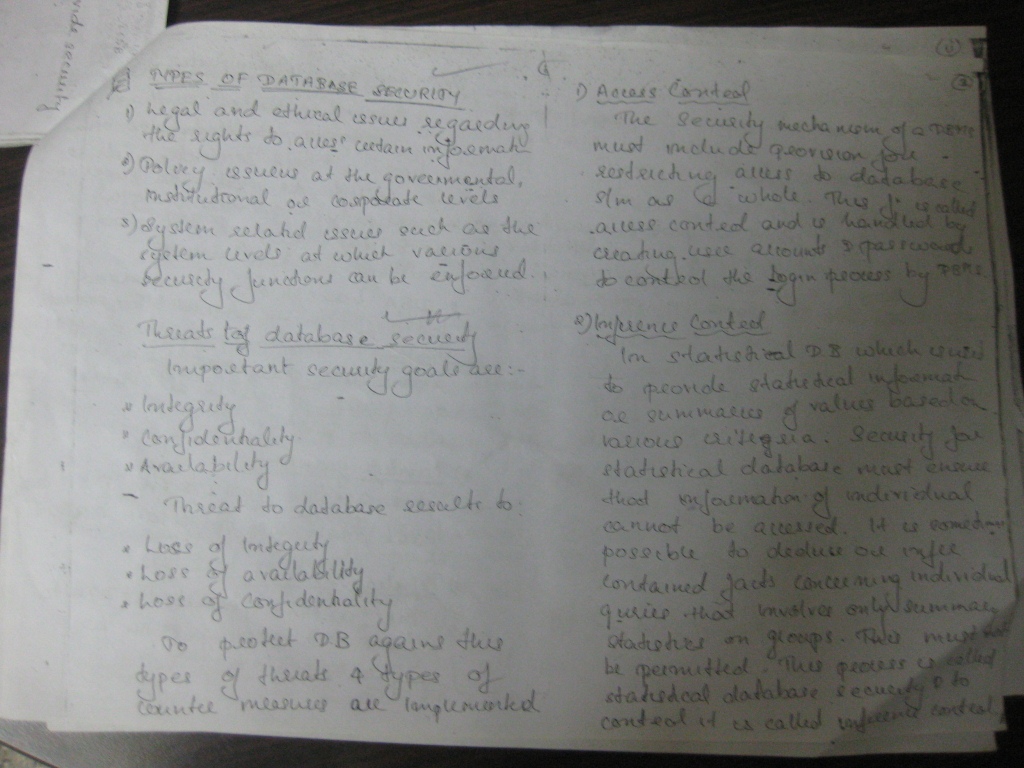 TYPES OF DATABASE SECURITY
1) Legal and ethical issues regarding
the rights to access certain informatn
2) Policy issues at the governmental,
institutional or corporate levels
3) System related issues such as the
system levels at which various
security functions can be enforced.
Threats to database security
Important security goals are:-
* Integrity
* Confidentiality
* Availability
- Threat to database results to:
* Loss of Integrity
* Loss of availability
* Loss of Confidentiality
To protect DB agains this
types of threats 4 types of
counter measures are implemented
1) Access Control
The Security mechanism of a DBMS
must include provision for
restricting access to database
s/m as a whole. This fn is called
access control and is handled by
creating user accounts & passwords
to control the login process by DBMS.
2) Inference Control
In statistical DB which is used
to provide statistical informatn
or summaries of values based on
various criteria. Security for
statistical database must ensure
that information of individual
cannot be accessed. It is sometimes
possible to deduce or infer
contained facts concerning individual
quries that involves only summary
statistics on groups. This must not
be permitted. This process is called
statistical database security & to
control it is called inference control.
vide security